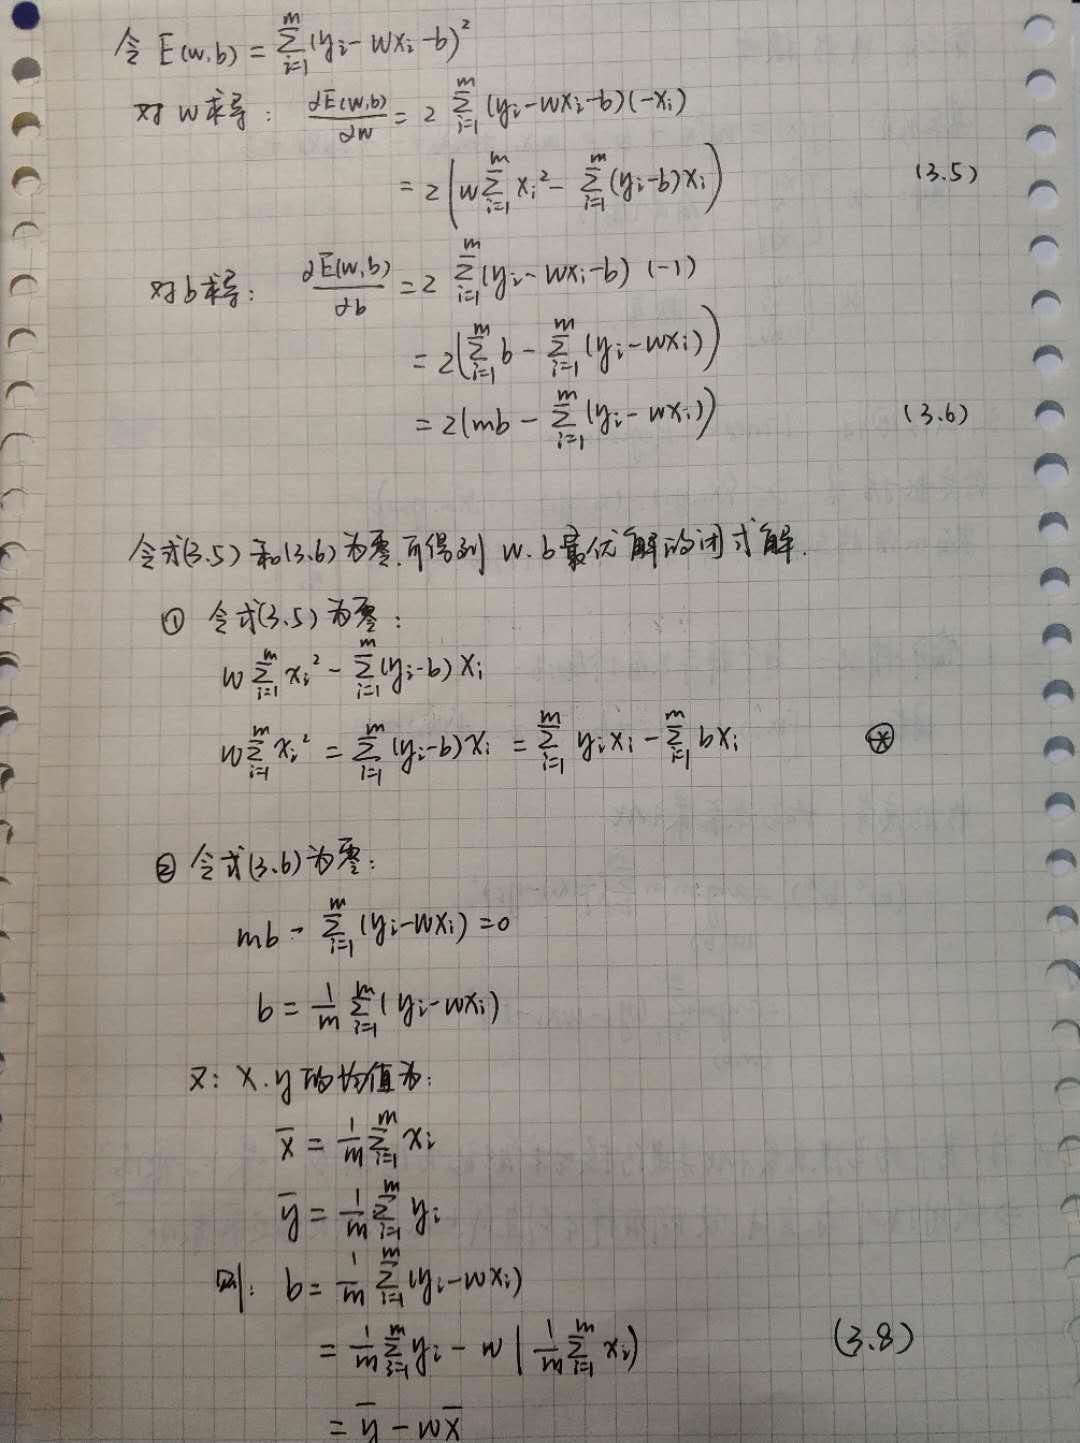 令 E(w,b) = ∑_{i=1}^{m} (y_i - wx_i - b)^2
对 w 求导: ∂E(w,b)/∂w = 2 ∑_{i=1}^{m} (y_i - wx_i - b)(-x_i)
= 2(w∑_{i=1}^{m} x_i^2 - ∑_{i=1}^{m} (y_i - b)x_i) (3.5)
对 b 求导: ∂E(w,b)/∂b = 2 ∑_{i=1}^{m} (y_i - wx_i - b) (-1)
= 2(∑_{i=1}^{m} b - ∑_{i=1}^{m} (y_i - wx_i))
= 2(mb - ∑_{i=1}^{m} (y_i - wx_i)) (3.6)
令式(3.5) 和(3.6) 为零,可得到 w.b最优解的闭式解.
① 令式(3.5) 为零:
w∑_{i=1}^{m} x_i^2 - ∑_{i=1}^{m} (y_i - b) x_i
w∑_{i=1}^{m} x_i^2 = ∑_{i=1}^{m} (y_i - b)x_i = ∑_{i=1}^{m} y_i x_i - ∑_{i=1}^{m} bx_i ⊛
② 令式(3.6)为零:
mb - ∑_{i=1}^{m} (y_i - wx_i) = 0
b = 1/m ∑_{i=1}^{m} (y_i - wx_i)
又: x.y的均值为:
x̄ = 1/m ∑_{i=1}^{m} x_i
ȳ = 1/m ∑_{i=1}^{m} y_i
则: b = 1/m ∑_{i=1}^{m} (y_i - wx_i)
= 1/m ∑_{i=1}^{m} y_i - w(1/m ∑_{i=1}^{m} x_i) (3.8)
= ȳ - wx̄